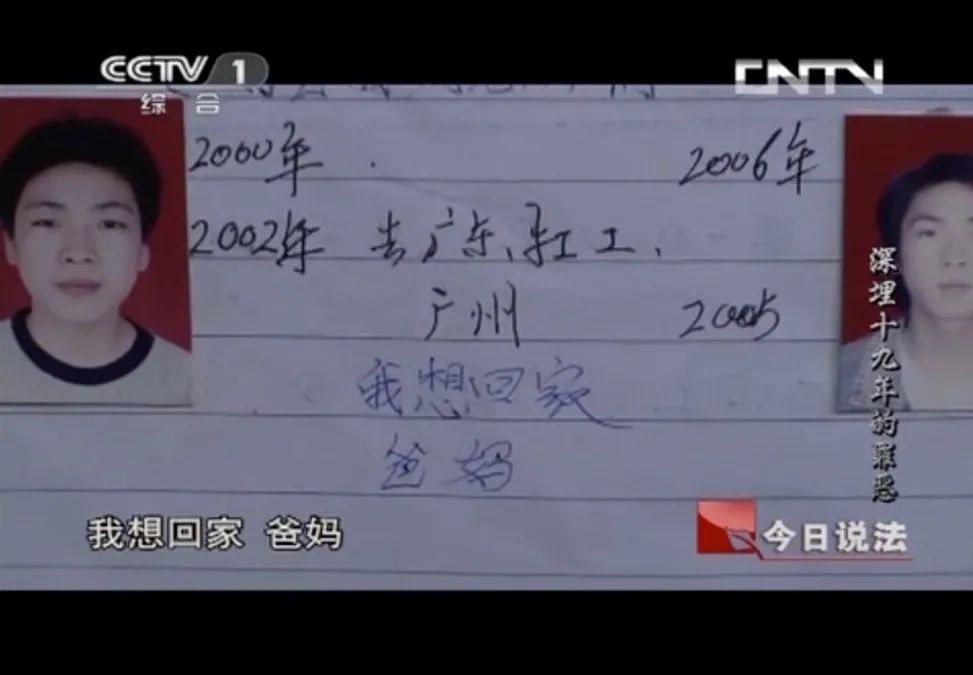 CCTV 1
综合
CNTV
2000年 .
2006年
2002年 去广东、打工、
广州 2005
我想回家
爸妈
深埋十九年的罪恶
我想回家 爸妈
今日说法